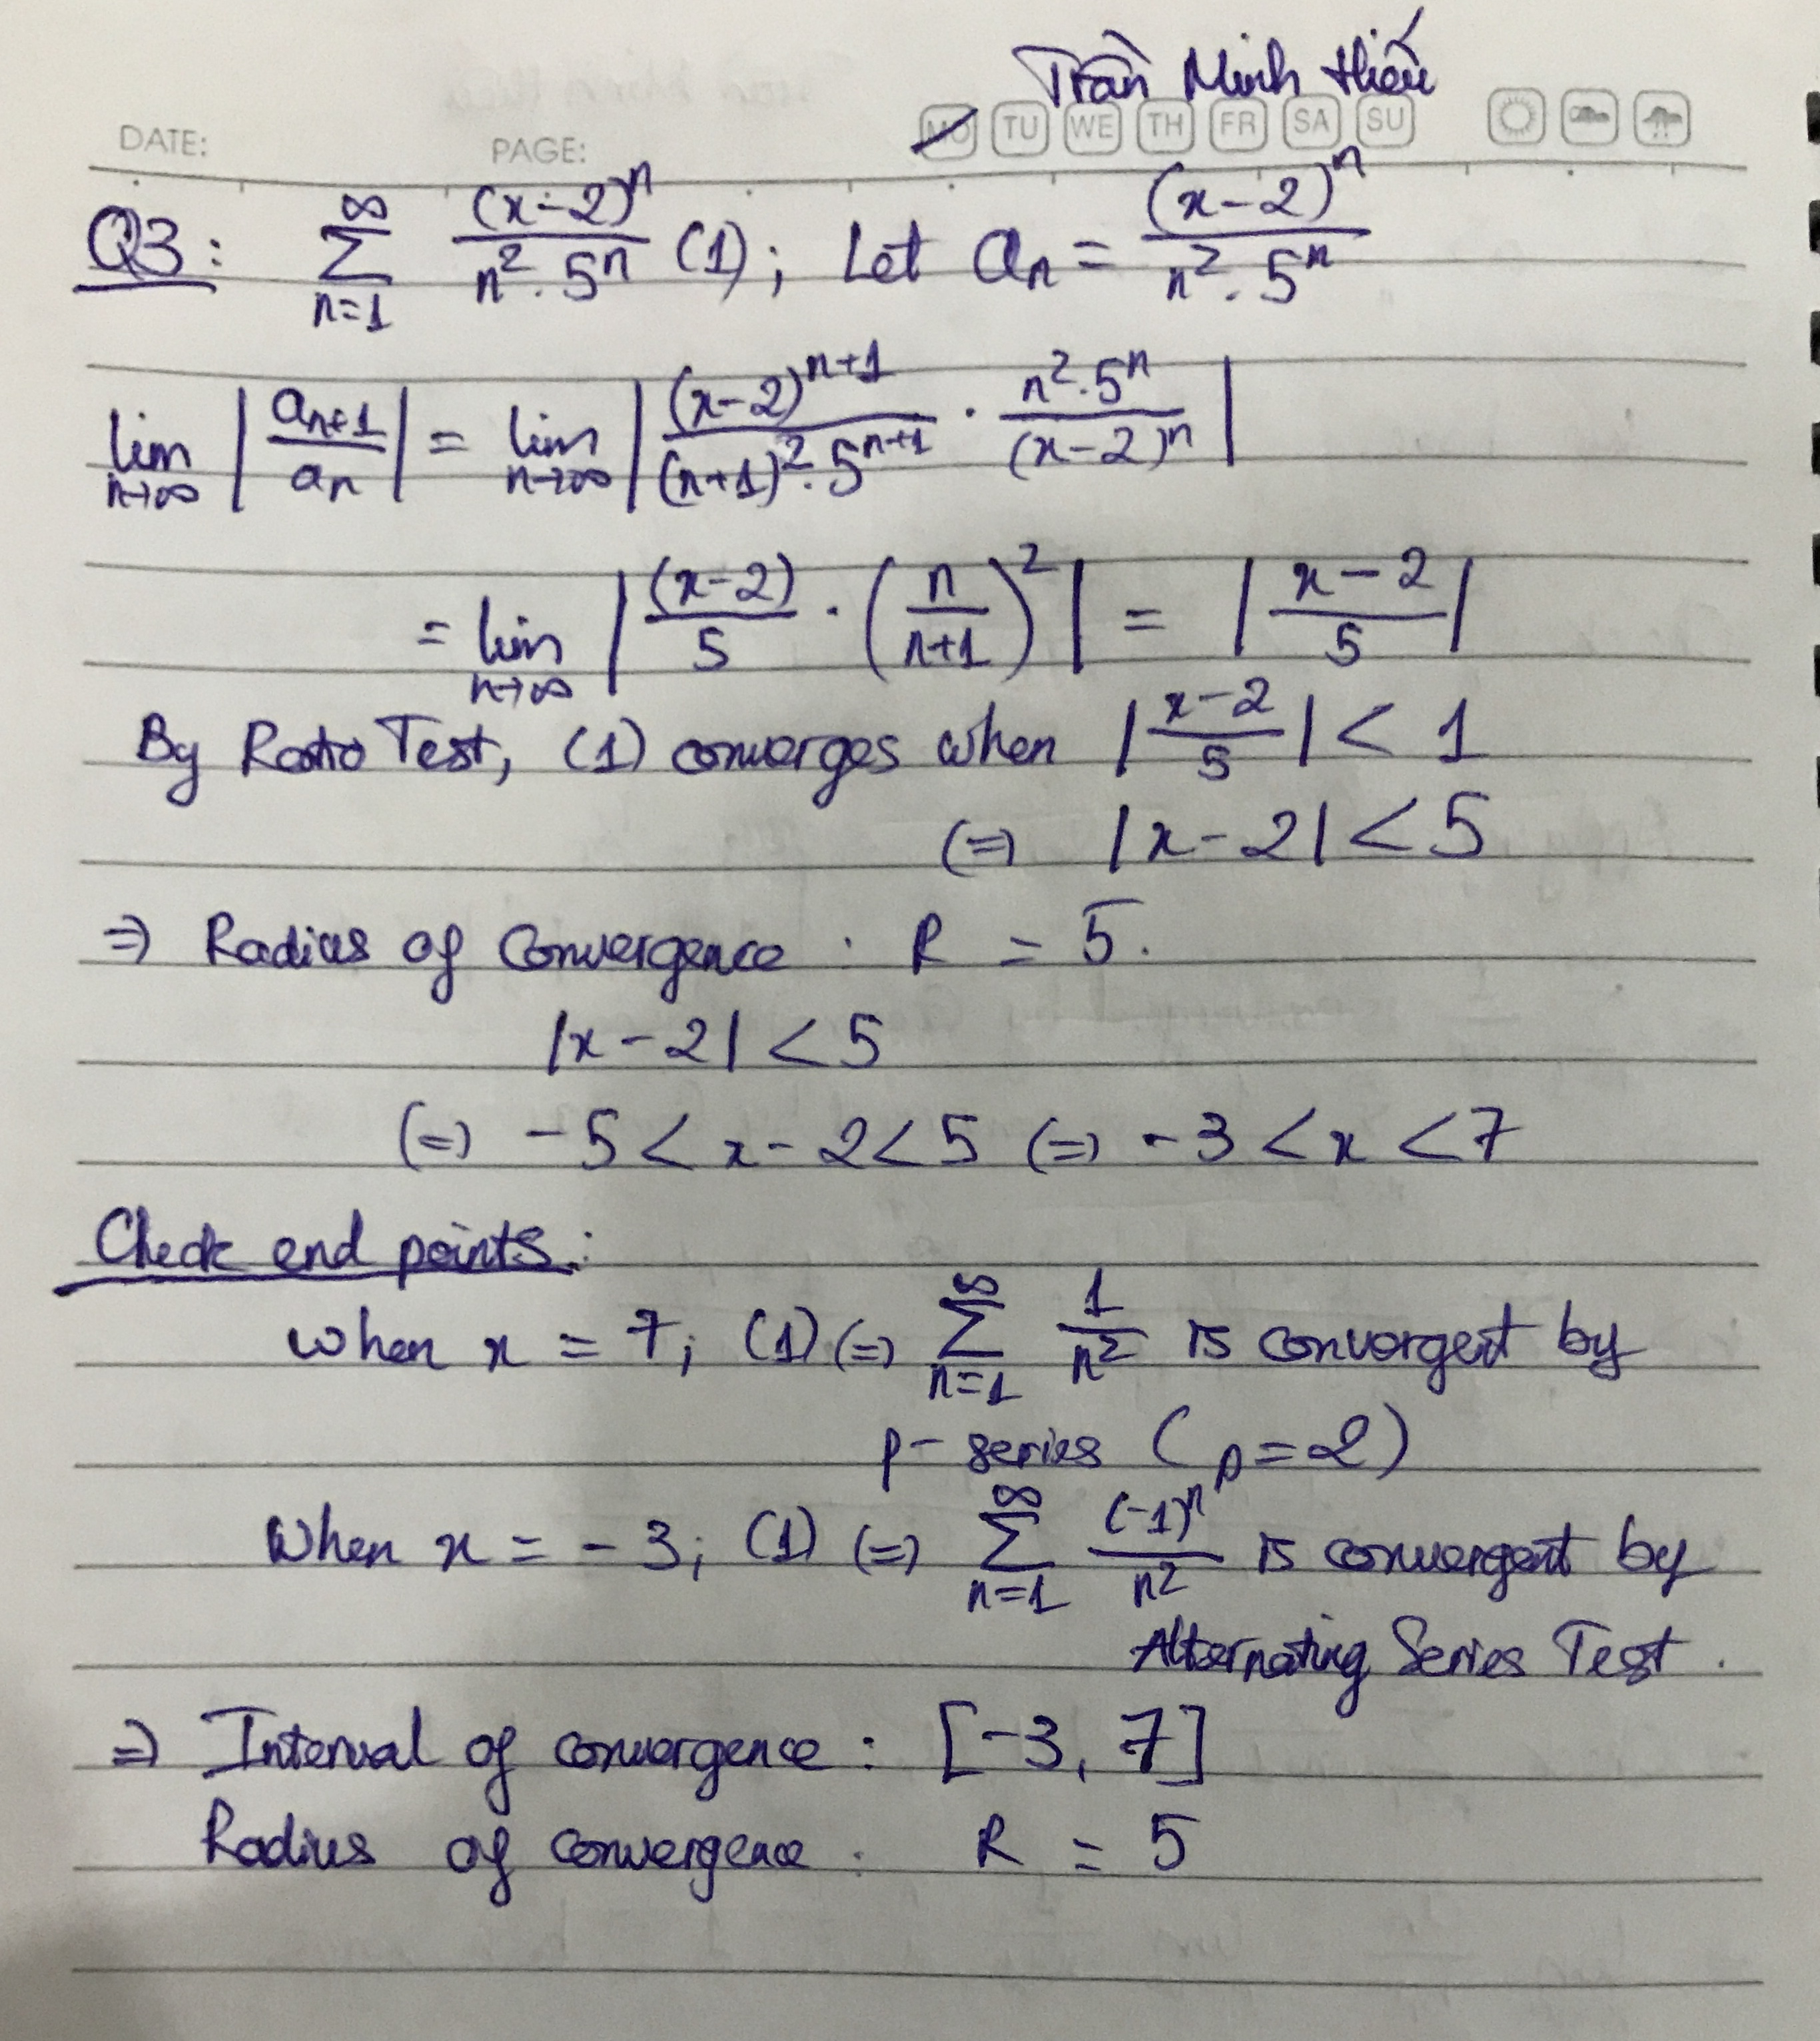 Trần Minh Hiếu
DATE: PAGE: MO TU WE TH FR SA SU
Q3: \sum_{n=1}^{∞} \frac{(x-2)^n}{n^2 . 5^n} (1); Let a_n = \frac{(x-2)^n}{n^2 . 5^n}
\lim_{n→∞} |\frac{a_{n+1}}{a_n}| = \lim_{n→∞} |\frac{(x-2)^{n+1}}{(n+1)^2 . 5^{n+1}} . \frac{n^2 . 5^n}{(x-2)^n}|
= \lim_{n→∞} |\frac{(x-2)}{5} . (\frac{n}{n+1})^2| = |\frac{x-2}{5}|
By Ratio Test, (1) converges when |\frac{x-2}{5}| < 1
(=) |x-2| < 5
=) Radius of Convergence : R = 5.
|x-2| < 5
(=) -5 < x-2 < 5 (=) -3 < x < 7
Check end points:
when x = 7; (1) (=) \sum_{n=1}^{∞} \frac{1}{n^2} is convergent by
p-series (p=2)
When x = -3; (1) (=) \sum_{n=1}^{∞} \frac{(-1)^n}{n^2} is convergent by
Alternating Series Test.
=) Interval of convergence : [-3, 7]
Radius of convergence : R = 5